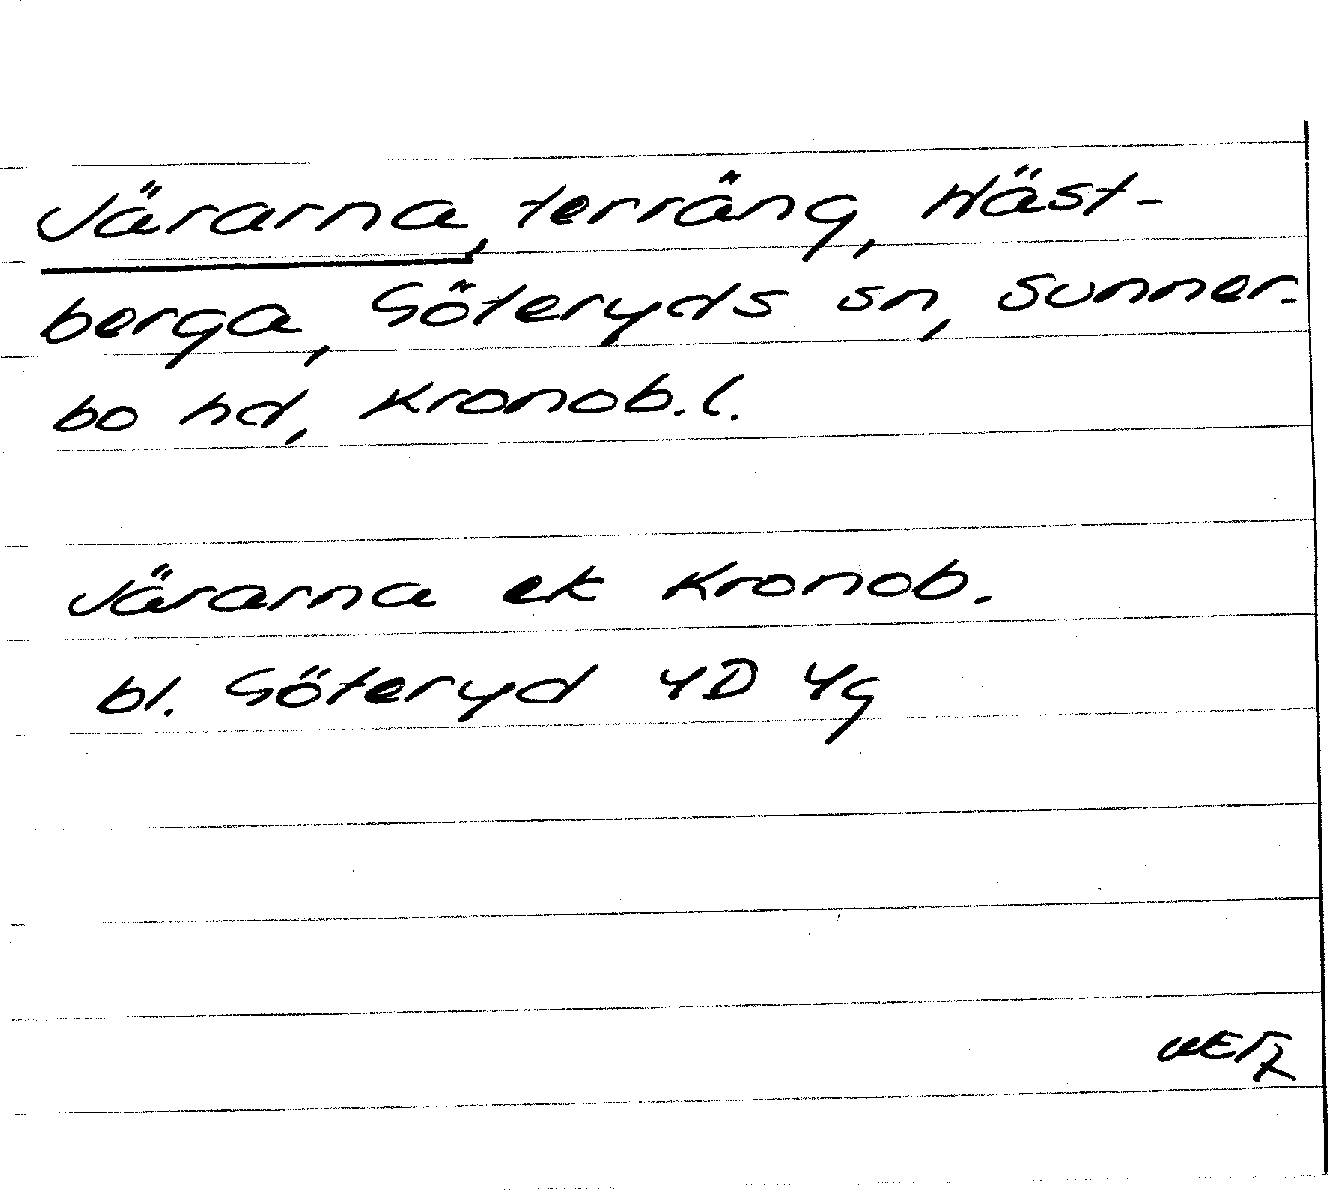 Järarna, terräng, Häst-
berga, Göteryds sn, Sunner-
bo hd, Kronob.l.
Järarna ek Kronob.
bl. Göteryd 4D 4g